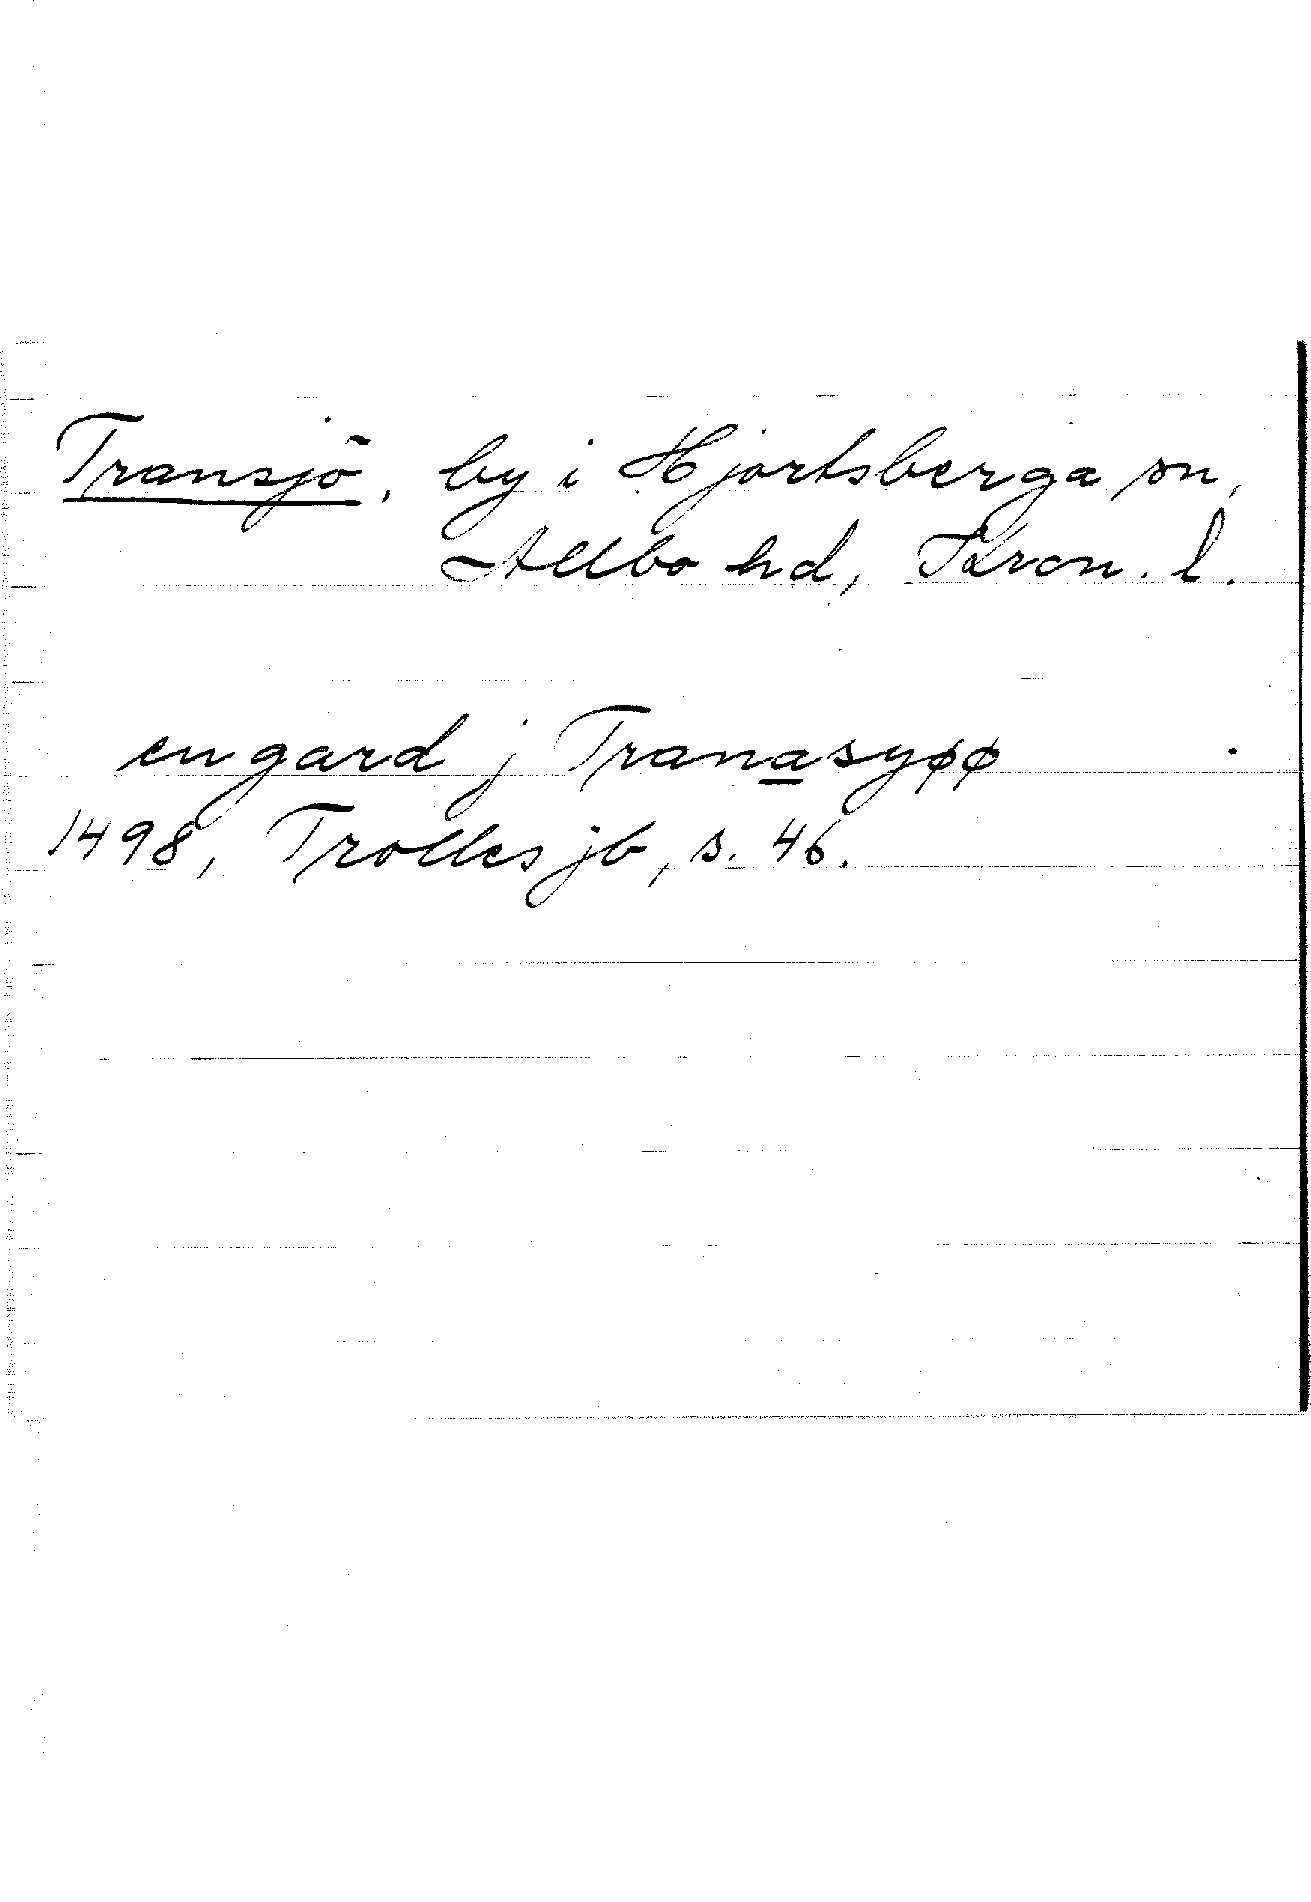 Transjö, by i Hjortsberga sn,
Allbo hd, Kron. l.
en gard j Tranasyøø
1498, Trolles jb, s. 46.